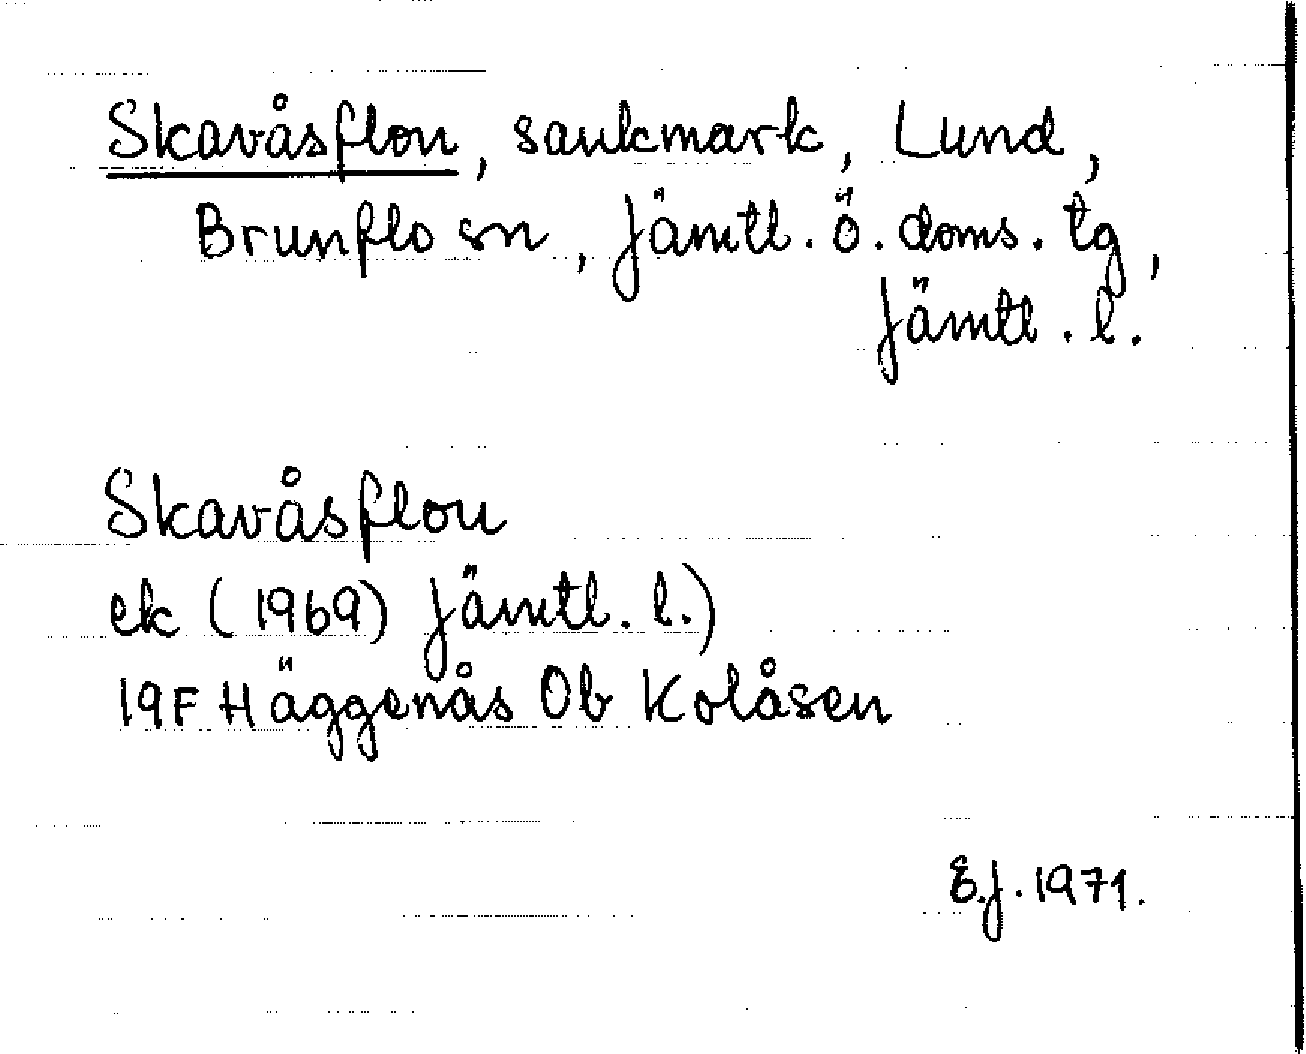 Skavåsflon, sankmark, Lund,
Brunflo sn, Jämtl. ö. doms. tg,
Jämtl. l.
Skavåsflon
ek (1969) Jämtl. l.)
19F Häggenås Ob Kolåsen
E.J. 1971.